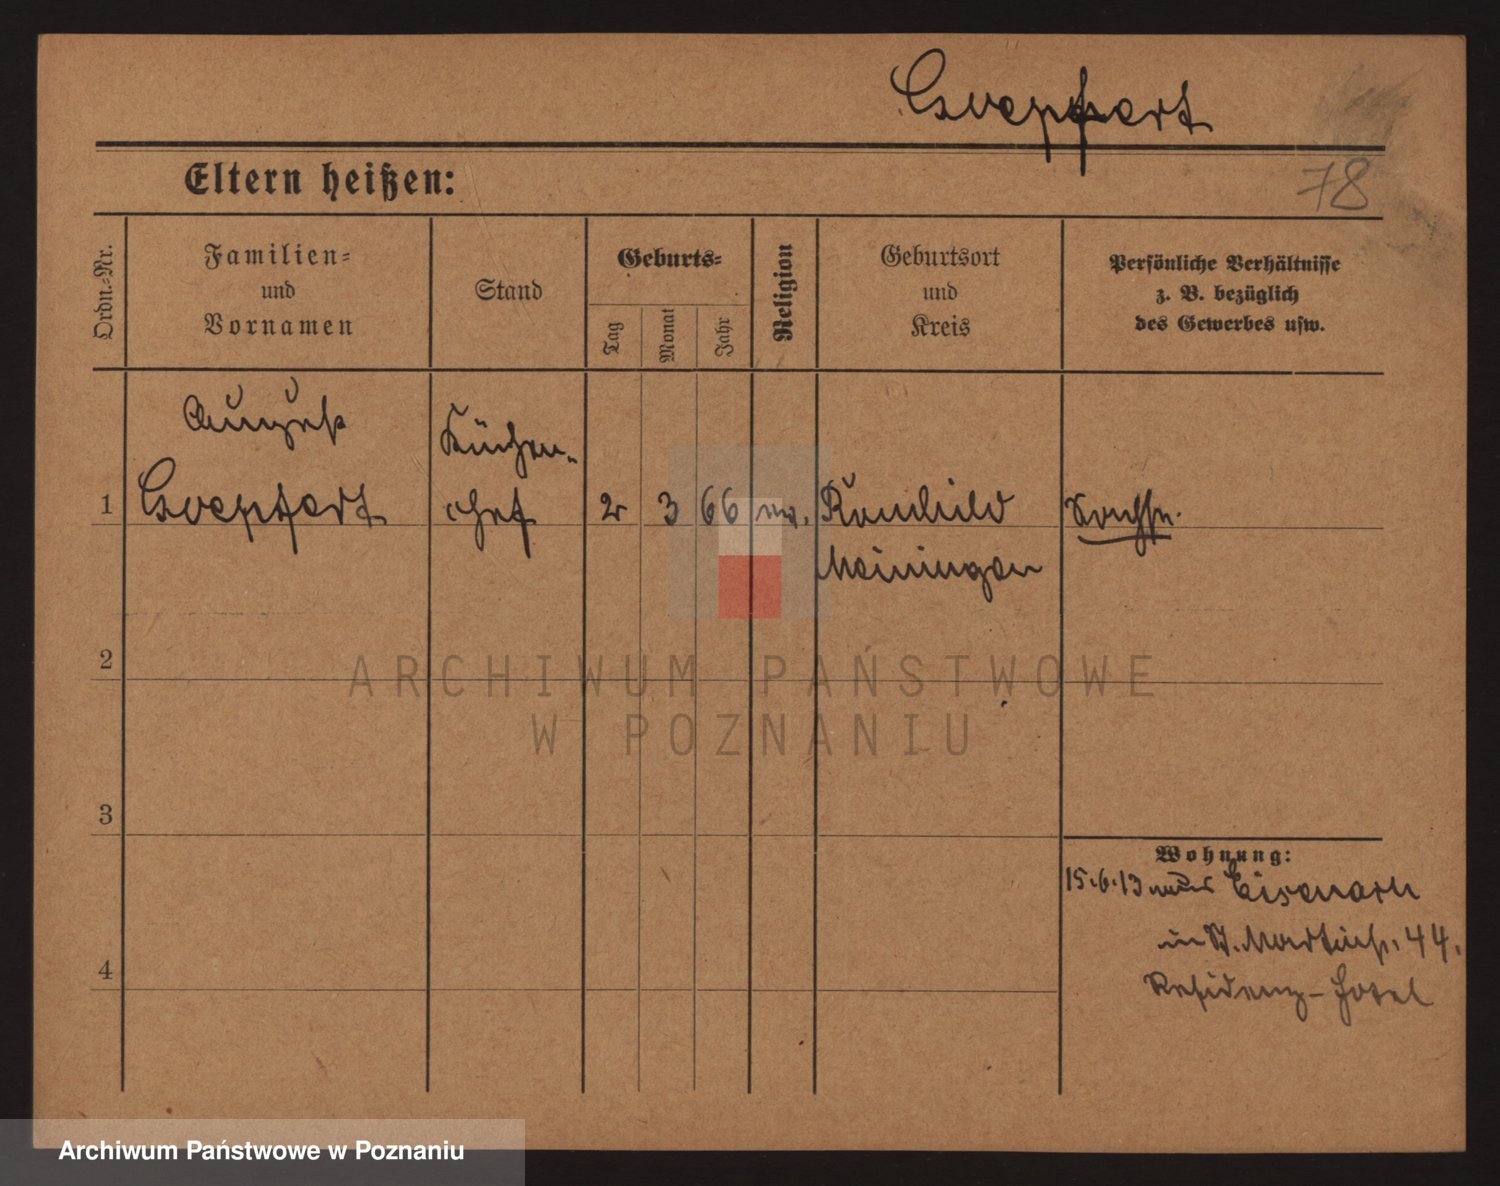 Goepfert
78
Eltern heißen:
Ordn.-Nr.
Familien-
und
Vornamen
Stand
Geburts-
Tag
Monat
Jahr
Religion
Geburtsort
und
Kreis
Persönliche Verhältnisse
z. B. bezüglich
des Gewerbes usw.
August
Küchen-
1 Goepfert chef 2 3 66 ev. Römhild Sachse.
Meiningen
2
ARCHIWUM PAŃSTWOWE
W POZNANIU
3
Wohnung:
15.6.13 Eisenach
in St. Martinstr. 44.
4
Residenz-Hotel
Archiwum Państwowe w Poznaniu